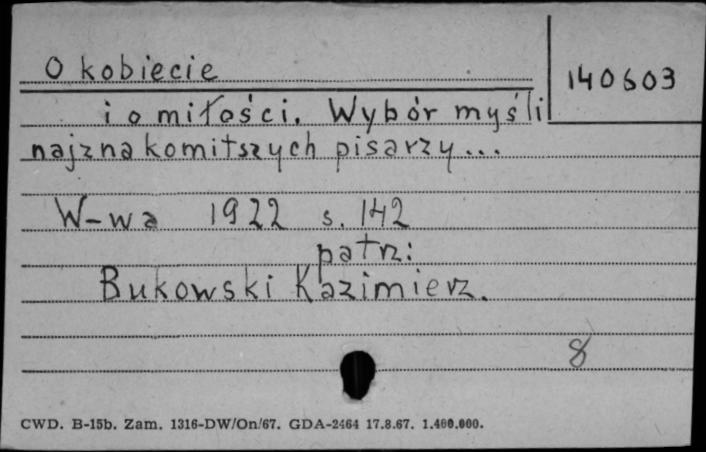 O kobiecie
140603
i o miłości. Wybór myśli
najznakomitszych pisarzy...
W-wa 1922 s. 142
patrz:
Bukowski Kazimierz.
8
CWD. B-15b. Zam. 1316-DW/On/67. GDA-2464 17.8.67. 1.460.000.